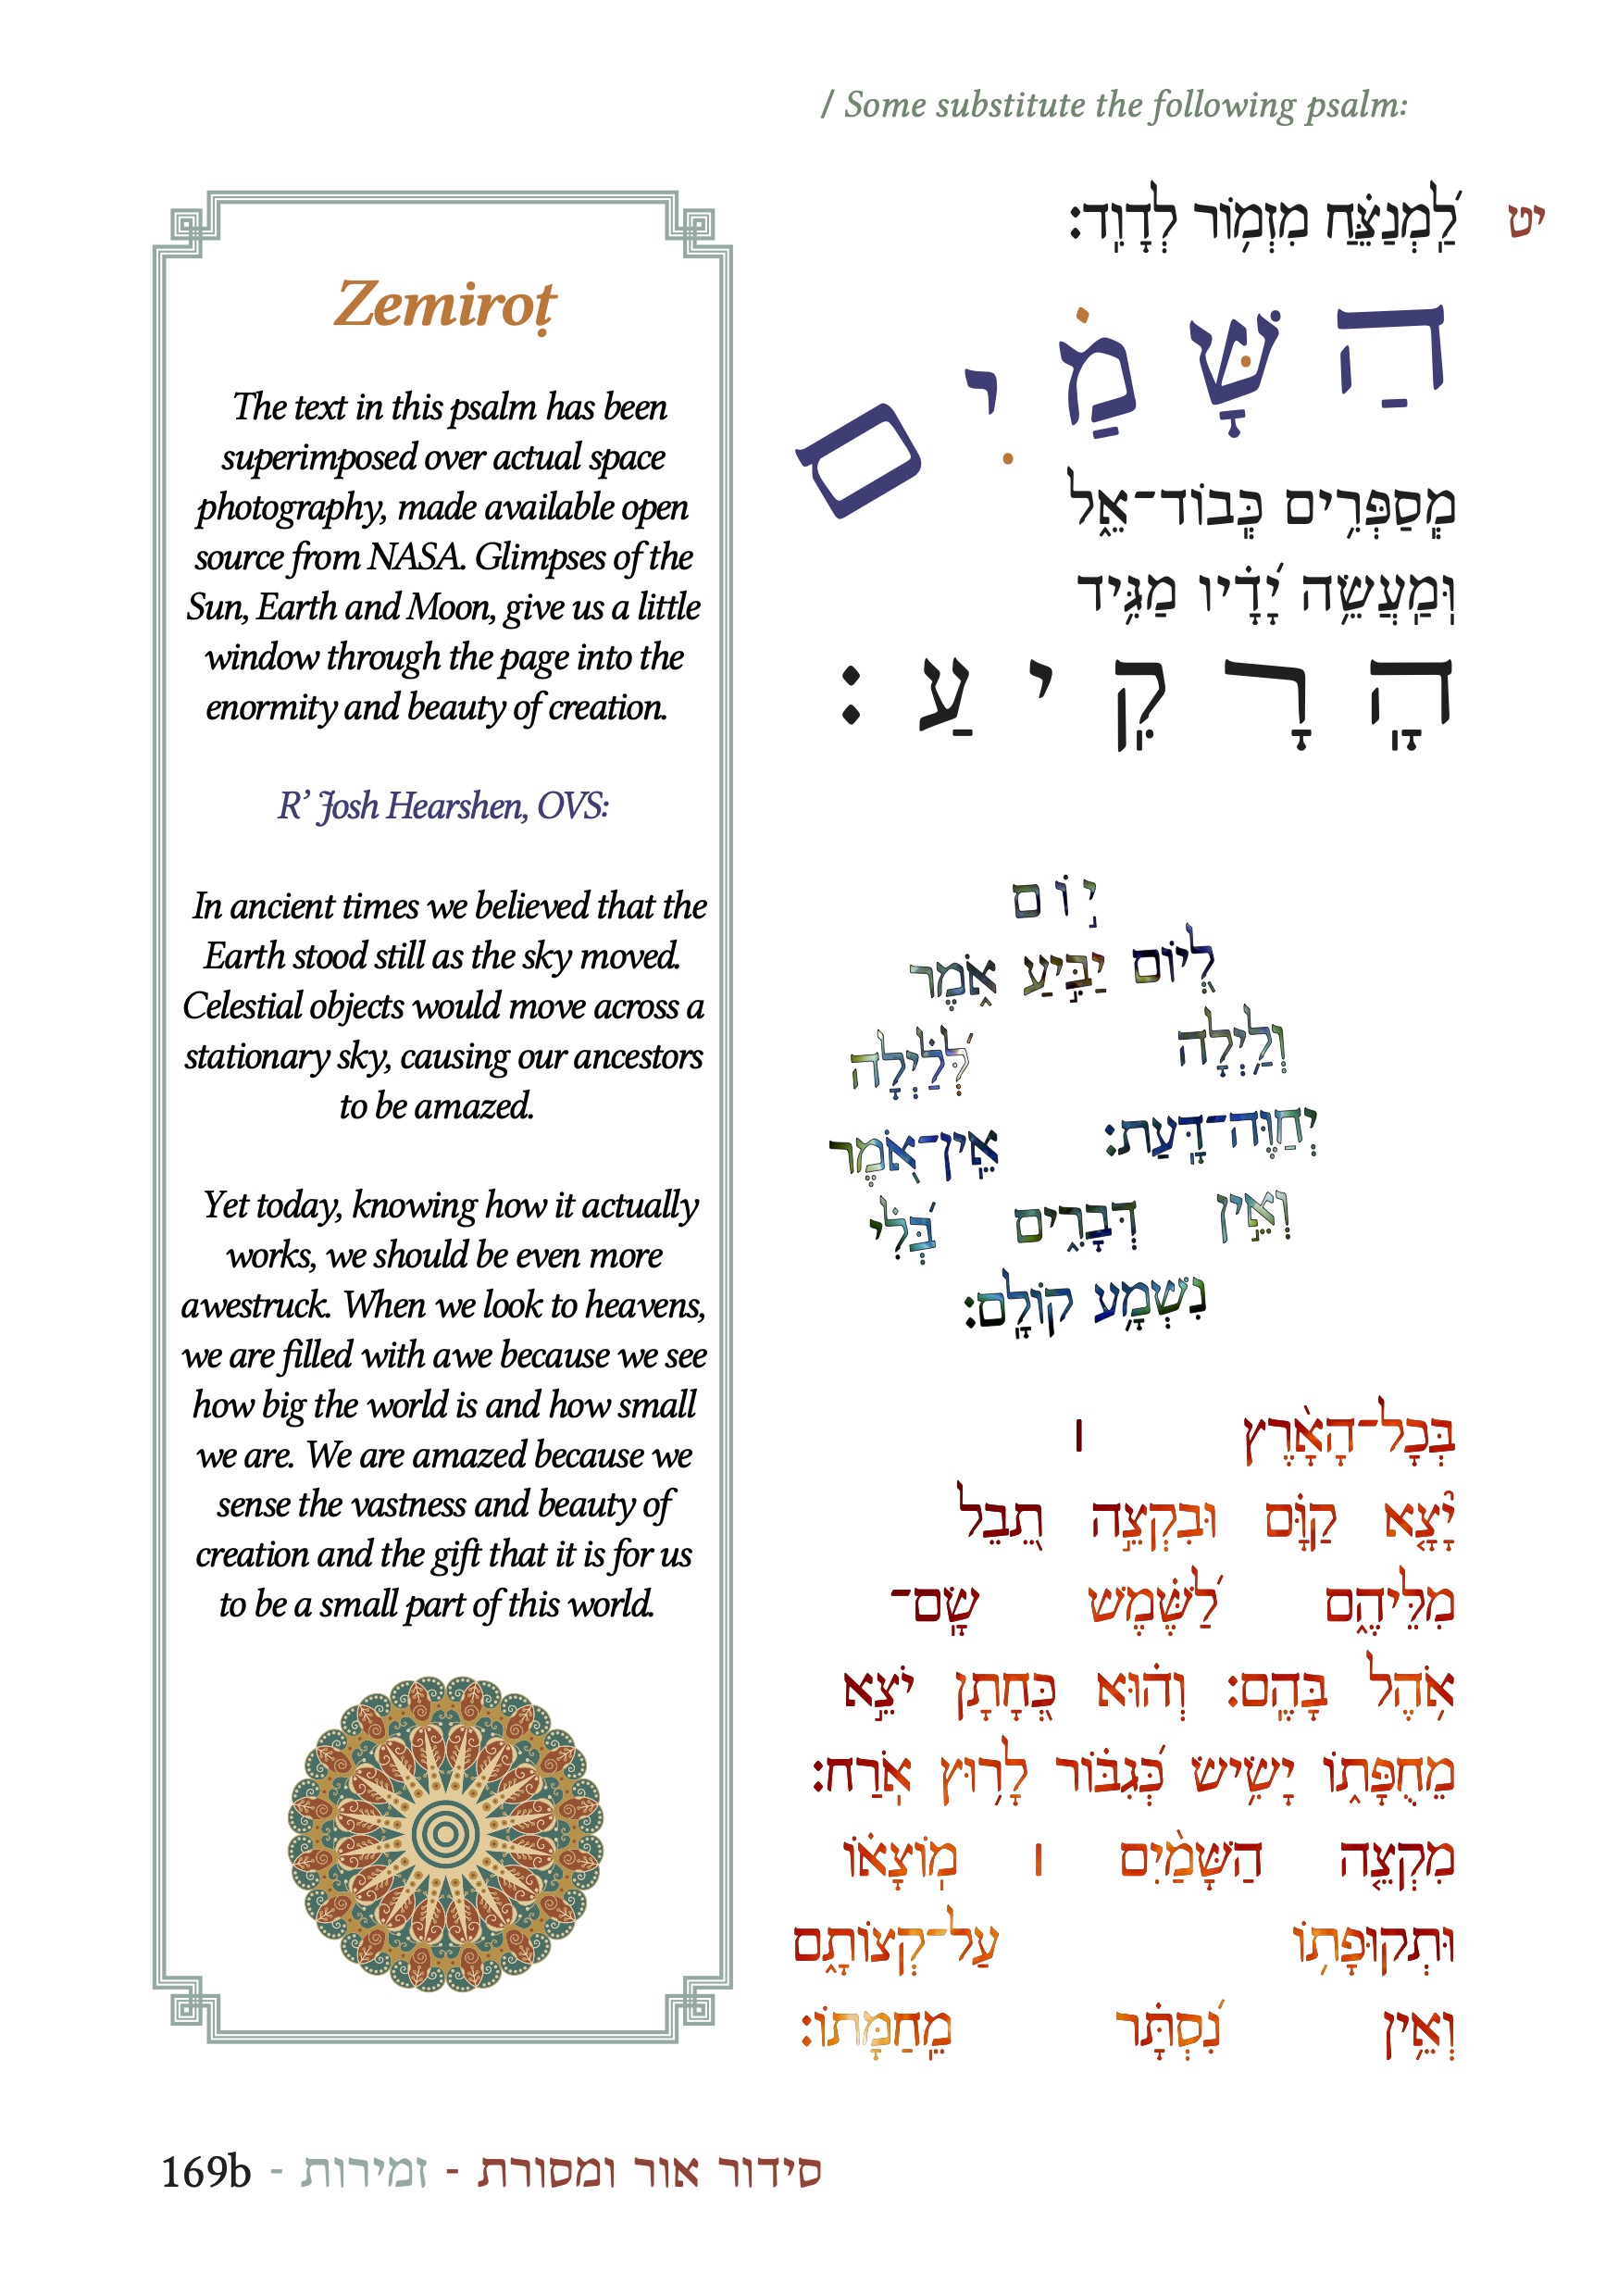 / Some substitute the following psalm:
יט
לַ֝מְנַצֵּ֗חַ מִזְמ֥וֹר לְדָוִֽד׃
הַשָּׁמַ֗יִם
מְֽסַפְּרִ֥ים כְּבֽוֹד־אֵ֑ל
וּֽמַעֲשֵׂ֥ה יָ֝דָ֗יו מַגִּ֥יד
הָרָקִֽיעַ׃
י֣וֹם
לְ֭יוֹם יַבִּ֣יעַֽ אֹ֑מֶר
וְלַ֥יְלָה לְּ֝לַ֗יְלָה
יְחַוֶּה־דָּֽעַת׃ אֵֽין־אֹ֭מֶר
וְאֵ֣ין דְּבָרִ֑ים בְּ֝לִ֗י
נִשְׁמָ֥ע קוֹלָֽם׃
בְּכָל־הָאָ֨רֶץ ׀
יָ֘צָ֤א קַוָּ֗ם וּבִקְצֵ֣ה תֵ֭בֵל
מִלֵּיהֶ֑ם לַ֝שֶּׁ֗מֶשׁ שָֽׂם־
אֹ֥הֶל בָּהֶֽם׃ וְה֗וּא כְּ֭חָתָן יֹצֵ֣א
מֵחֻפָּת֑וֹ יָשִׂ֥ישׂ כְּ֝גִבּ֗וֹר לָר֥וּץ אֹֽרַח׃
מִקְצֵ֤ה הַשָּׁמַ֨יִם ׀ מֽוֹצָא֗וֹ
וּתְקוּפָת֥וֹ עַל־קְצוֹתָ֑ם
וְאֵ֥ין נִ֝סְתָּ֗ר מֵֽחַמָּתוֹ׃
Zemiroṭ
The text in this psalm has been
superimposed over actual space
photography, made available open
source from NASA. Glimpses of the
Sun, Earth and Moon, give us a little
window through the page into the
enormity and beauty of creation.
R’ Josh Hearshen, OVS:
In ancient times we believed that the
Earth stood still as the sky moved.
Celestial objects would move across a
stationary sky, causing our ancestors
to be amazed.
Yet today, knowing how it actually
works, we should be even more
awestruck. When we look to heavens,
we are filled with awe because we see
how big the world is and how small
we are. We are amazed because we
sense the vastness and beauty of
creation and the gift that it is for us
to be a small part of this world.
סידור אור ומסורת - זמירות - 169b